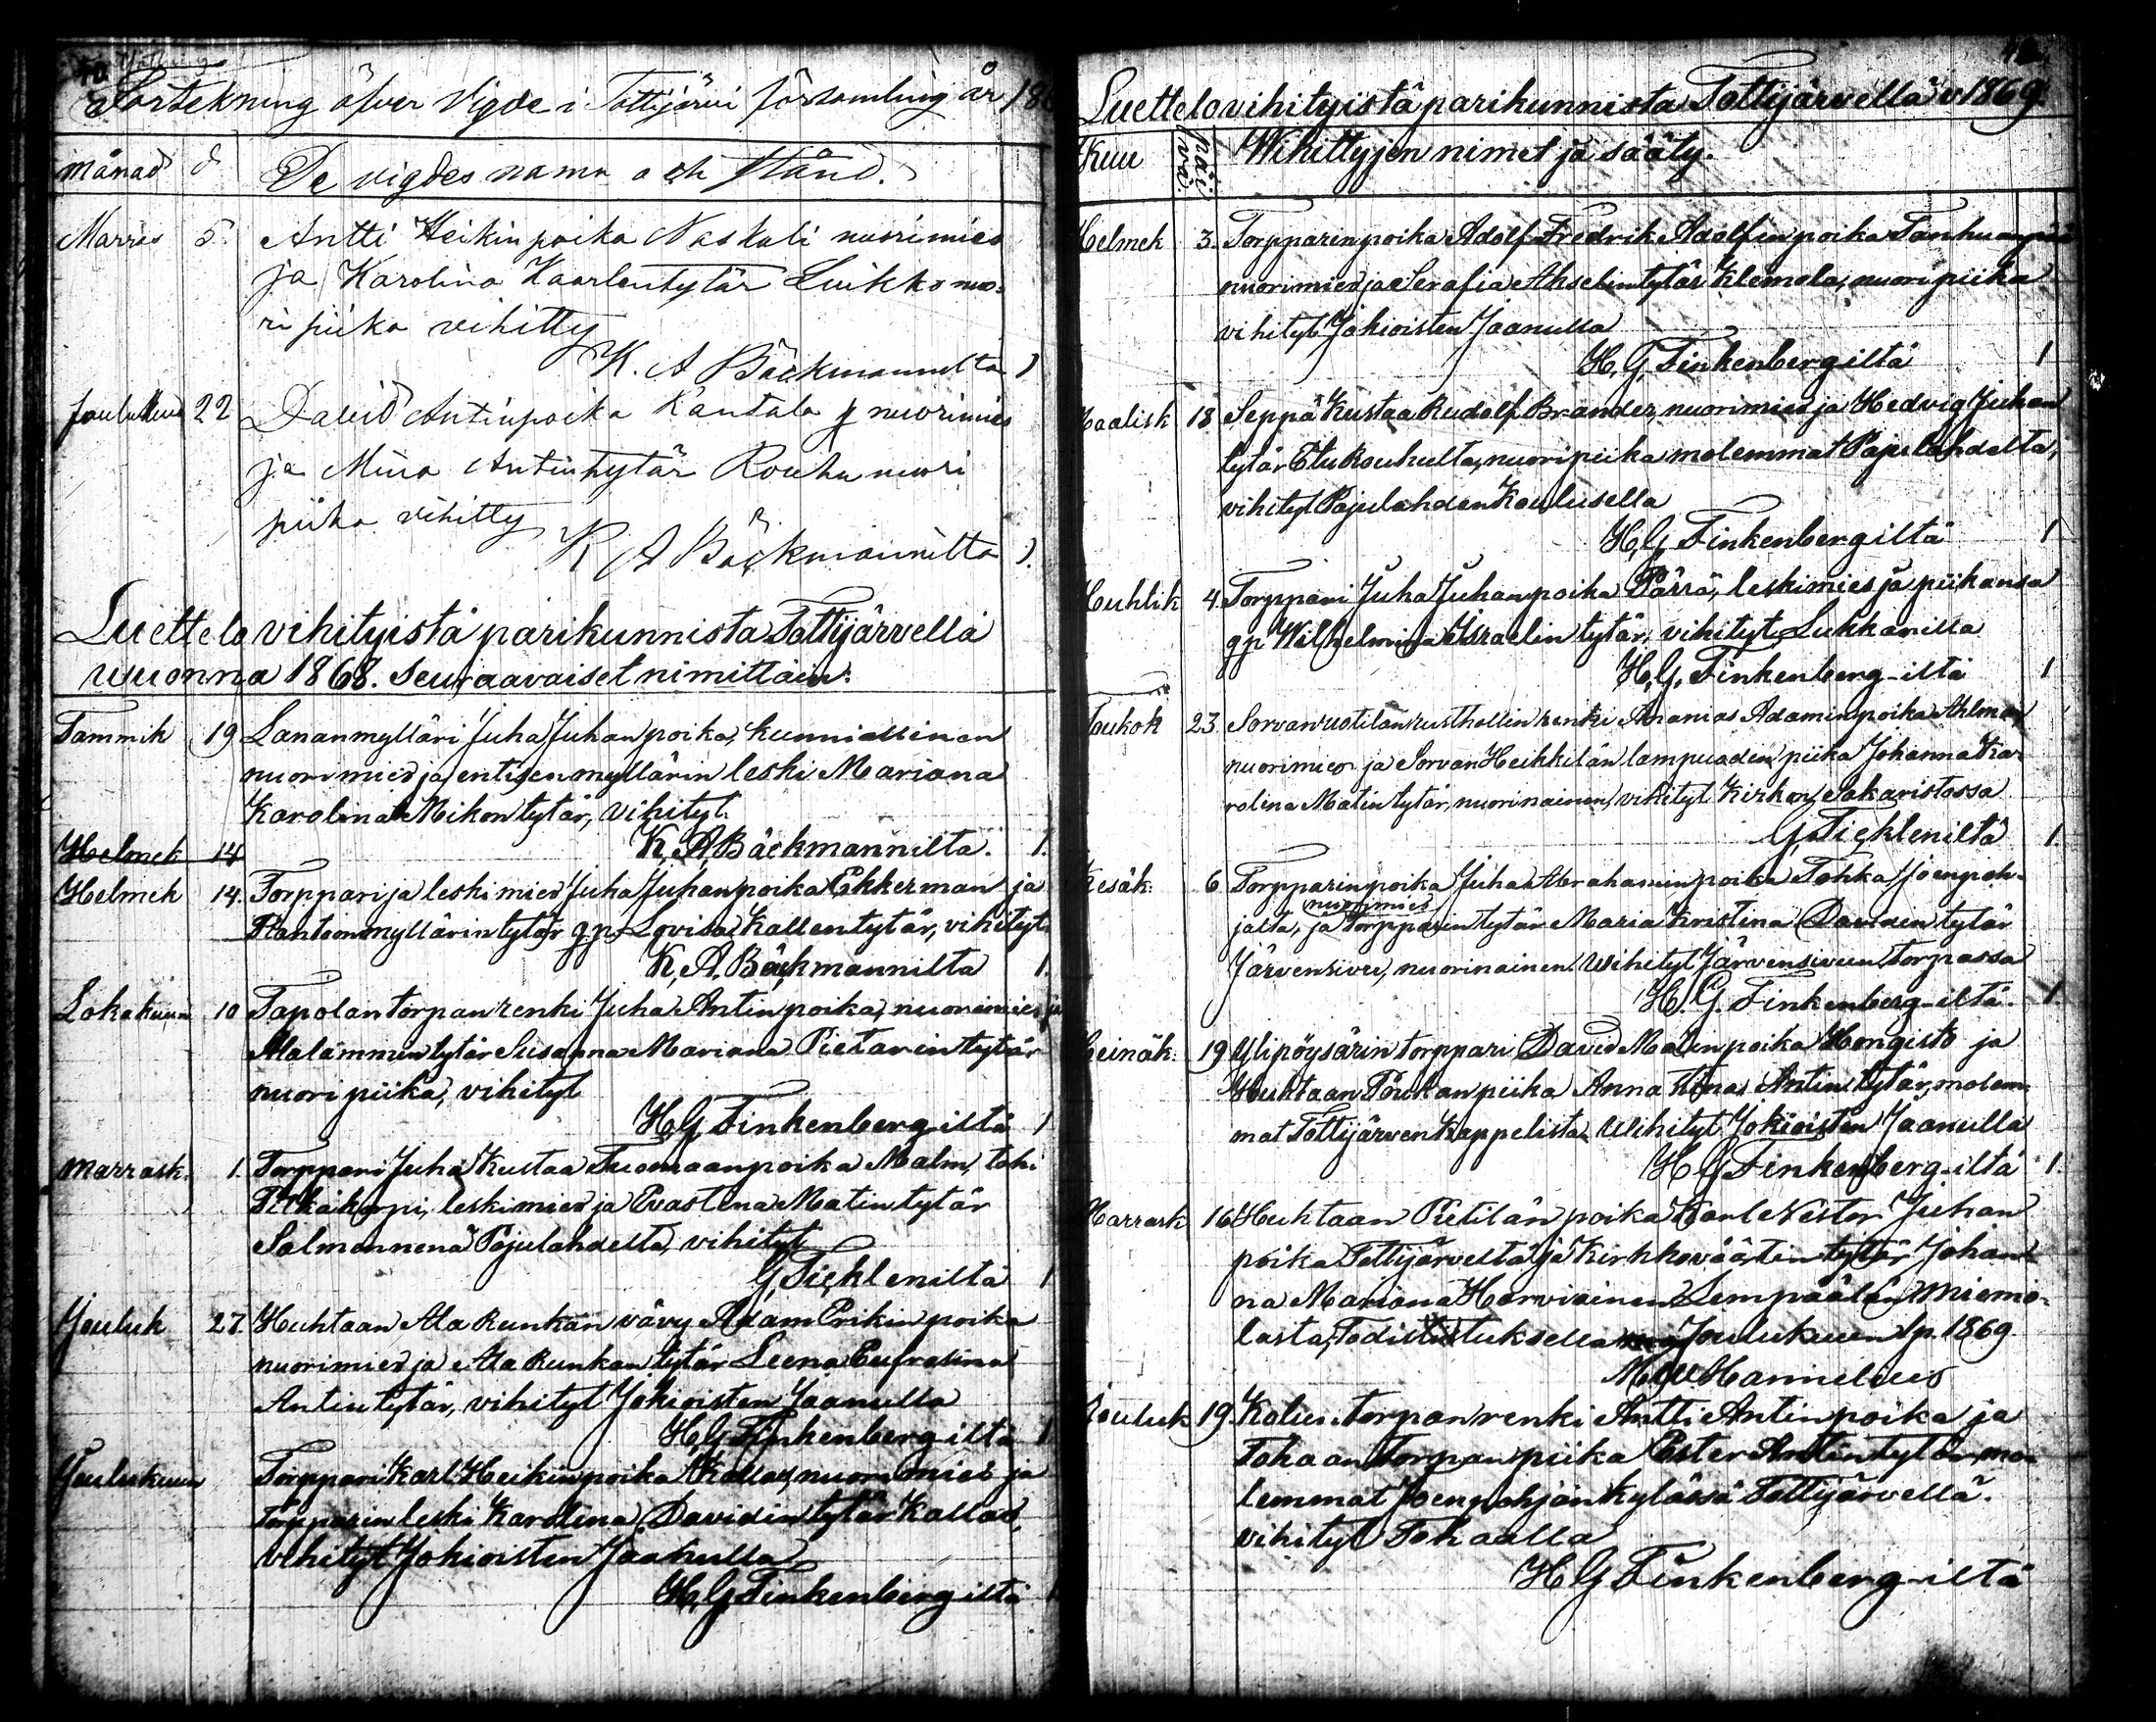 40
Förtekning öfver Vigde i Tottijärvi församling år 18
Månad d De vigdes namn och stånd.
Marras 5. Antti Heikinpoika Naskali nuorimies
ja Karolina Kaarlentytär Luikko nuo-
ri piika vihitty
K. A Bäckmannilta 1
Joulukuu 22 David Antinpoika Kantala nuorimies
ja Miina Antintytär Rouhu nuori
piika vihitty
K A Bäckmannilta 1.
Luettelo vihityistä parikunnista Tottijärvellä
vuonna 1868. seuraavaiset nimittäin:
Tammik 19 Lananmylläri Juha Juhanpoika, kunniallinen
nuorimies ja entisen myllärin leski Mariana
Karolina Mikontytär, vihityt.
K, A, Bäckmannilta. 1.
Helmek 14
Helmek 14. Torppari ja leskimies Juha Juhanpoika Ekkerman ja
Rantoonmyllärintytär gp. Lovisa Kallentytär, vihityt.
K, A. Bäckmannilta 1.
Lokakuun 10 Tapolan torpan renki Juha Antinpoika, nuorimies ja
Alalammen tytär Susanna Mariana Pietarintytär
nuori piika, vihityt
H,G, Finkenbergiltä 1
Marrask. 1. Torppari Juha Kustaa Tuomaanpoika Malm, tahi
Pitkäkorpi, leskimies ja Evastena Matintytär
Salmennenä Pajulahdelta, vihityt
G, Tickleniltä 1
Jouluk 27. Huhtaan Ala Runkan vävy Adam Erikinpoika
nuorimies ja Ala Runkan tytär Leena Eufrosina
Antintytär, vihityt Jokioisten Jaanulla
H,G, Finkenbergiltä 1
Joulukuun Torppari Karl Heikinpoika Kallas, nuorimies ja
torpparin leski Karolina Davidintytär Kallas,
vihityt Jokioisten Jaanulla
H,G, Finkenbergiltä 1
Luettelo vihityistä parikunnista Tottijärvellä v 1869.
Kuu päivä Wihittyjen nimet ja sääty.
Helmek 3. Torpparinpoika Adolf Fredrik Adolfinpoika
nuorimies ja Serafia Akselintytär Klemola, nuori piika
vihityt Jokioisten Jaanulla
H, G, Finkenbergiltä 1
Maalisk 18 Seppä Kustaa Rudolf Brander, nuorimies ja Hedvig Juhan
tytär Etu Rouhulta, nuori piika molemmat Pajulahdelta,
vihityt Pajulahden Koulusella
H,G, Finkenbergiltä 1
Huhtik 4. Torppari Juha Juhanpoika Pärrä, leskimies ja piikansa
gp Wilhelmina Israelintytär, vihityt Lukkarilla
H,G, Finkenberg-iltä 1
Toukok 23. Sorvan uotilan rusthollin renki Ananias Adaminpoika Ahlman
nuorimies ja Sorvan Heikkilän lampuoden piika Johanna Ka-
rolina Matintytär, nuorinainen, vihityt Kirkon Sakaristossa
G, Tickleniltä 1.
Kesäk: 6 Torpparinpoika Juha Abrahaminpoika Tohka, Joenpoh-
nuorimies
jasta, ja torpparintytär Maria Kristina Daviden tytär
Järvensivu, nuorinainen Wihityt Järvensivun torpassa
H. G. Finkenberg-iltä. 1.
Heinäk: 19 Ylipöysärin torppari David Matinpoika Hongisto ja
Huhtaan Poukan piika Anna Tiina Antintytär, molem-
mat Tottijärven kappelista Wihityt Jokioisten Jaanulla
H G Finkenberg-iltä 1.
Marrask 16 Huhtaan Pietilän poika Karl Nestor Juhan
poika Tottijärveltä ja Kirkkoväärtin tytär Johan-
na Mariana Horviainen Lempäälän Miemo-
lasta, Todistustuksella Joulukuun 1p. 1869
Mannelius
Jouluk 19. Kolun torpan renki Antti Antinpoika ja
Tokaan torpan piika Ester Antintytär, mo-
lemmat Joenpohjan kylässä Tottijärvellä.
vihityt Tokaalla
H G Finkenberg-iltä